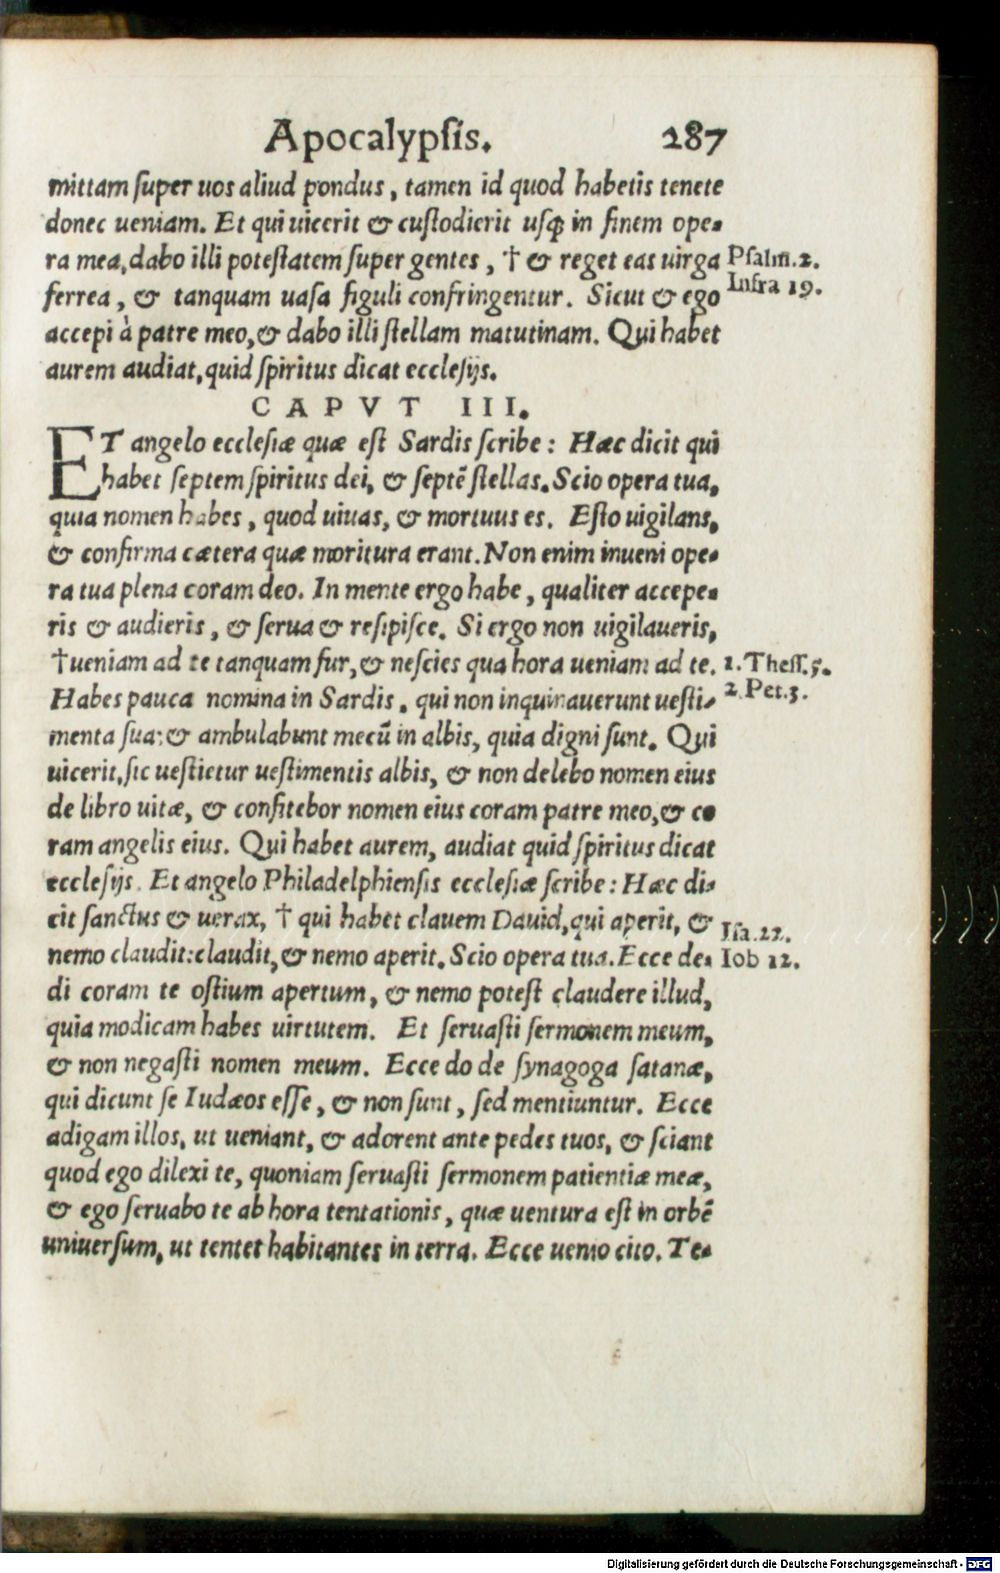 Apocalypſis. 287
mittam ſuper uos aliud pondus, tamen id quod habetis tenete
donec ueniam. Et qui uicerit & cuſtodierit uſq́ in finem ope-
ra mea, dabo illi poteſtatem ſuper gentes, † & reget eas uirga
Pſalm. 2.
ferrea, & tanquam uaſa figuli confringentur. Sicut & ego
Infra 19.
accepi à patre meo, & dabo illi ſtellam matutinam. Qui habet
aurem audiat, quid ſpiritus dicat eccleſijs.
CAPVT III.
ET angelo eccleſiæ quæ eſt Sardis ſcribe: Hæc dicit qui
habet ſeptem ſpiritus dei, & ſeptē ſtellas. Scio opera tua,
quia nomen habes, quod uiuas, & mortuus es. Eſto uigilans,
& confirma cætera quæ moritura erant. Non enim inueni ope-
ra tua plena coram deo. In mente ergo habe, qualiter accepe-
ris & audieris, & ſerua & reſipiſce. Si ergo non uigilaueris,
† ueniam ad te tanquam fur, & neſcies qua hora ueniam ad te.
1. Theſſ. 5.
Habes pauca nomina in Sardis, qui non inquinauerunt ueſti-
2. Pet. 3.
menta ſua: & ambulabunt mecū in albis, quia digni ſunt. Qui
uicerit, ſic ueſtietur ueſtimentis albis, & non delebo nomen eius
de libro uitæ, & confitebor nomen eius coram patre meo, & co
ram angelis eius. Qui habet aurem, audiat quid ſpiritus dicat
eccleſijs. Et angelo Philadelphienſis eccleſiæ ſcribe: Hæc di-
cit ſanctus & uerax, † qui habet clauem Dauid, qui aperit, &
Iſa. 22.
nemo claudit: claudit, & nemo aperit. Scio opera tua. Ecce de-
Iob 12.
di coram te oſtium apertum, & nemo poteſt claudere illud,
quia modicam habes uirtutem. Et ſeruaſti ſermonem meum,
& non negaſti nomen meum. Ecce do de ſynagoga ſatanæ,
qui dicunt ſe Iudæos eſſe, & non ſunt, ſed mentiuntur. Ecce
adigam illos, ut ueniant, & adorent ante pedes tuos, & ſciant
quod ego dilexi te, quoniam ſeruaſti ſermonem patientiæ meæ,
& ego ſeruabo te ab hora tentationis, quæ uentura eſt in orbē
uniuerſum, ut tentet habitantes in terra. Ecce uenio cito. Te-
Digitalisierung gefördert durch die Deutsche Forschungsgemeinschaft - DFG